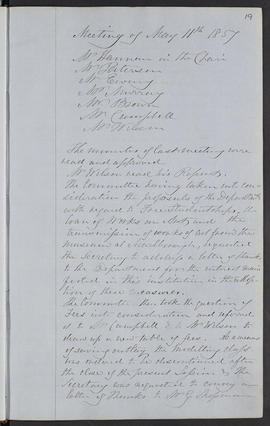 19
Meeting of May 11th 1857
Mr Hannan in the Chair
Mr Paterson
Mr Ewing
Mr Murray
Mr Brown
Mr Campbell
Mr Wilson
The minutes of last meeting were
read and approved.
Mr Wilson read his Report.
The Committee having taken into con-
sideration the proposals of the Department
with regard to
loan of Works on Art and the
transmission of works of Art from the
museum at Marlborough, requested
the Secretary to address a letter of thanks
to the Department for the interest mani-
fested in this institution in the adop-
tion of these measures.
The Committee then took the question of
Fees into consideration and referred
it to Mr Campbell & Mr Wilson to
draw up a new table of fees. As a means
of saving outlay the modelling class
was ordered to be discontinued after
the close of the present Session & the
Secretary was requested to convey a
letter of thanks to Mr G